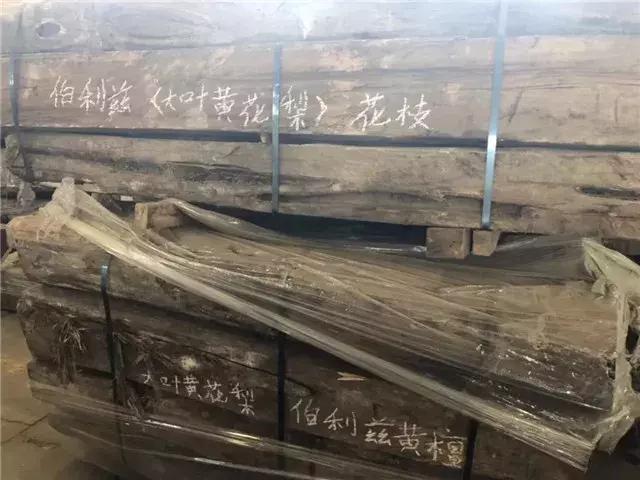 伯利兹(大叶黄花梨)花枝
大叶黄花梨
伯利兹黄檀